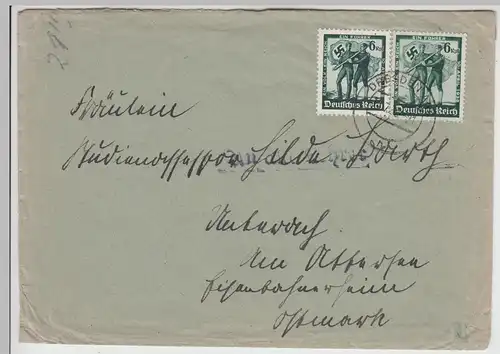 EIN FÜHRER EIN FÜHRER
6 Rpf 6 Rpf
Deutsches Reich Deutsches Reich
DRESDEN
Fräulein
Studienassessor Hilde
Unterach
Am Attersee
Eisenbahnerheim
Ostmark